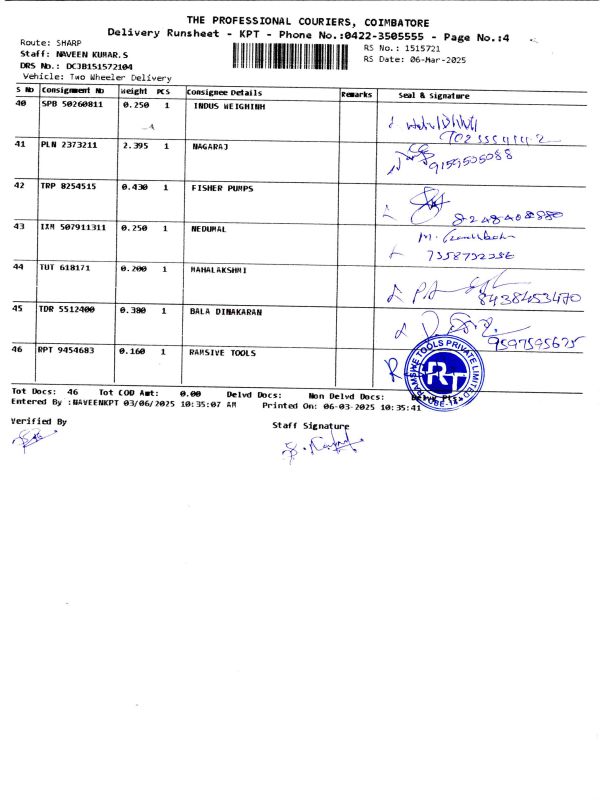 THE PROFESSIONAL COURIERS, COIMBATORE
Delivery Runsheet - KPT - Phone No.:0422-3505555 - Page No.:4
Route: SHARP
RS No.: 1515721
Staff: NAVEEN KUMAR.S
RS Date: 06-Mar-2025
DRS No.: DCJB151572104
Vehicle: Two Wheeler Delivery
S No Consignment No Weight PCS Consignee Details Remarks Seal & Signature
40 SPB 50260811 0.250 1 INDUS WEIGHINH
41 PLN 2373211 2.395 1 NAGARAJ
9159505088
42 TRP 8254515 0.430 1 FISHER PUMPS
8248408980
43 IXM 507911311 0.250 1 NEDUMAL
44 TUT 618171 0.200 1 MAHALAKSHMI
8438453470
45 TDR 5512400 0.380 1 BALA DINAKARAN
9597595675
46 RPT 9454683 0.160 1 RAMSIVE TOOLS
TOOLS PRIVATE LIMITED
RT
Tot Docs: 46 Tot COD Amt: 0.00 Delvd Docs: Non Delvd Docs:
Entered By :NAVEENKPT 03/06/2025 10:35:07 AM Printed On: 06-03-2025 10:35:41
Verified By
Staff Signature